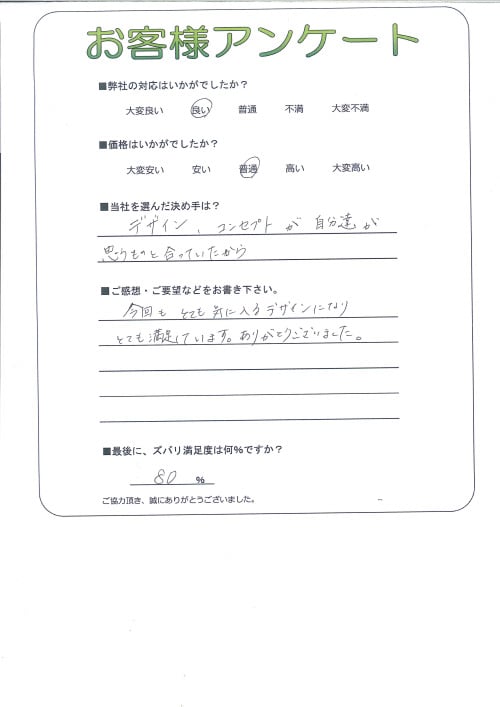 お客様アンケート
■弊社の対応はいかがでしたか？
大変良い 良い 普通 不満 大変不満
■価格はいかがでしたか？
大変安い 安い 普通 高い 大変高い
■当社を選んだ決め手は？
デザイン、コンセプトが自分達が
思うものと合っていたから
■ご感想・ご要望などをお書き下さい。
今回もとても気に入るデザインになり
とても満足しています。ありがとうございました。
■最後に、ズバリ満足度は何%ですか？
80 %
ご協力頂き、誠にありがとうございました。